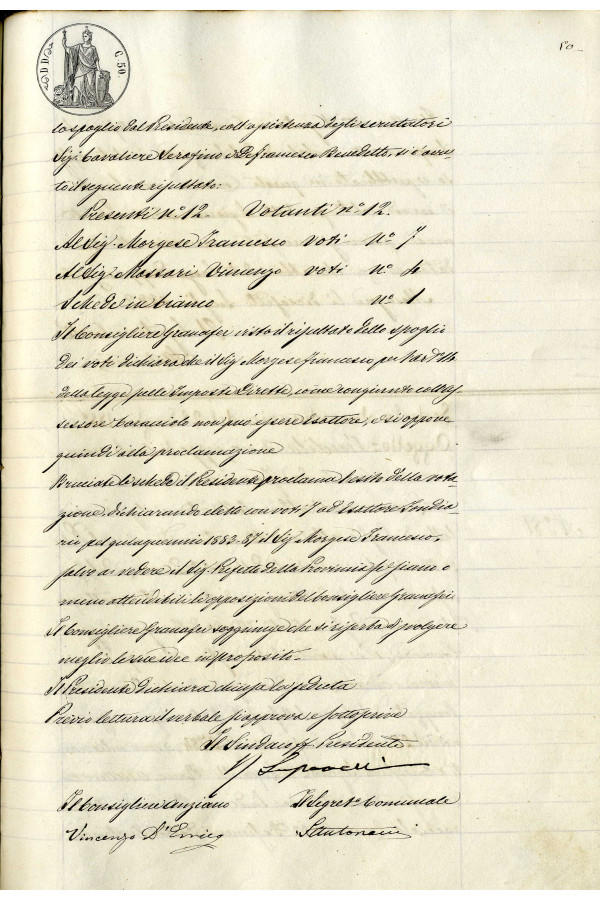 C. 50.
50
lo spoglio dal Presidente, coll'assistenza degli scrutatori
Sig.i Cavaliere Serafino e Defrancesco Benedetto, si è avu-
to il seguente risultato:
Presenti n.o 12. Votanti n.o 12.
Al Sig. Morgese Francesco voti n.o 7
Al Sig. Massari Vincenzo voti n.o 4
Schede in bianco n.o 1
Il Consigliere Granafei visto il risultato dello spoglio
dei voti dichiara che il Sig. Morgese Francesco per l'art. 14
della legge sulle Imposte Dirette, come congiunto coll'As-
sessore Caracciolo non può essere Esattore, e si oppone
quindi alla proclamazione
Bruciate le schede il Presidente proclama l'esito della vota-
zione, dichiarando eletto con voti 7 ad Esattore Fondia-
rio pel quinquennio 1883-87 il Sig. Morgese Francesco,
salvo a vedere il Sig. Prefetto della Provincia se siano o
meno attendibili le opposizioni del Consigliere Granafei
Il Consigliere Granafei soggiunge che si riserba di svolgere
meglio le sue idee in proposito.
Il Presidente dichiara chiusa la seduta
Previo lettura il verbale si approva e sottoscrive
Il Sindaco ff. Presidente
Il Consigliere anziano Il Segret.o Comunale
Vincenzo D'Errico